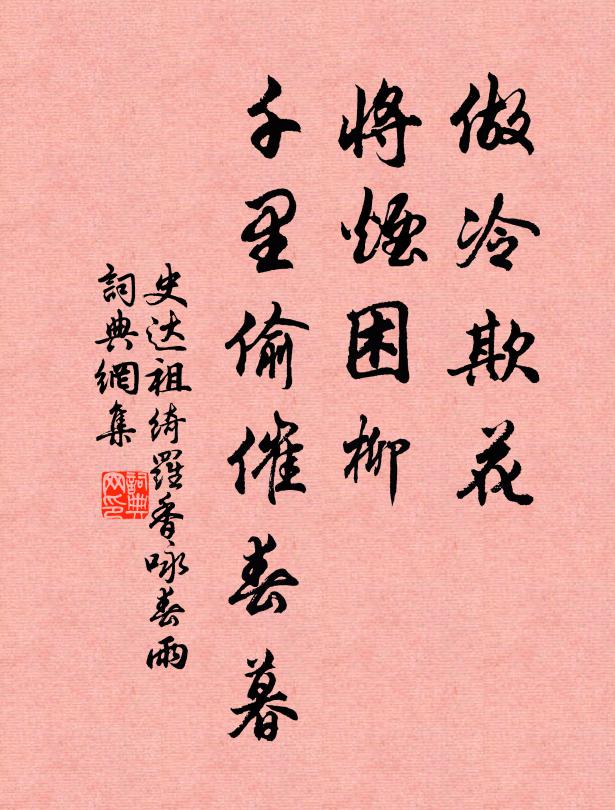 做冷欺花
将煙困柳
千里偷催春暮
史达祖绮羅香咏春雨
詞典網集
詞典
网印